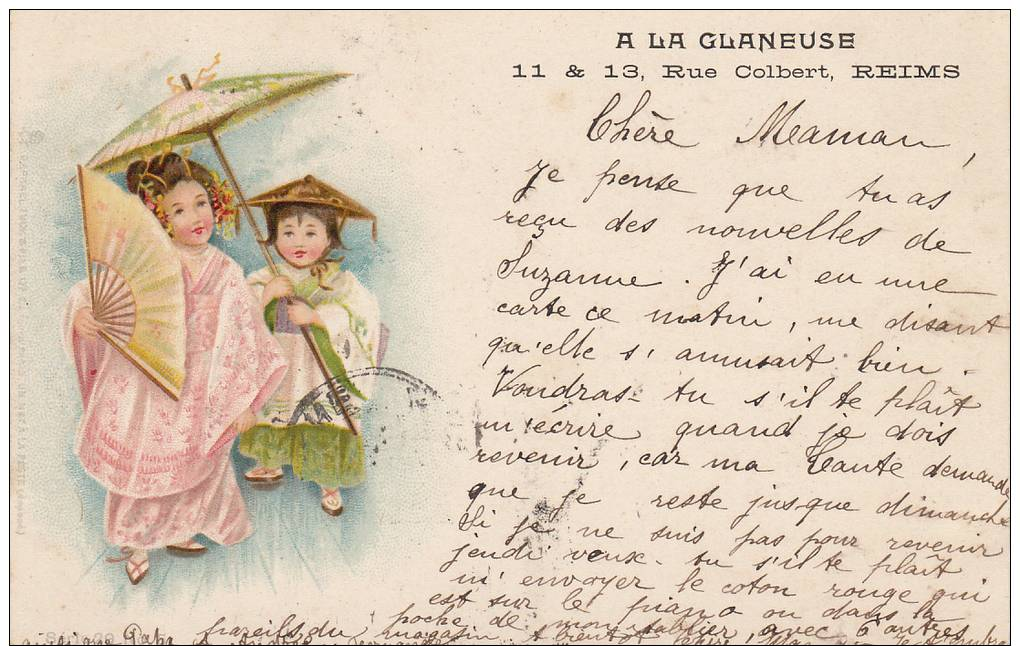 A LA GLANEUSE
11 & 13, Rue Colbert, REIMS
Chère Meaman,
Je pense que tu as
reçu des nouvelles de
Suzanne. J'ai eu une
carte ce matin, me disant
qu'elle s'amusait bien.
Voudras-tu s'il te plaît
m'écrire quand je dois
revenir, car ma tante demande
que je reste jusque dimanche
Si je ne suis pas pour revenir
jeudi veux-tu s'il te plaît
m'envoyer le coton rouge qui
est sur le piano ou dans la
poche de mon tablier, avec 6 autres
pareils du magasin